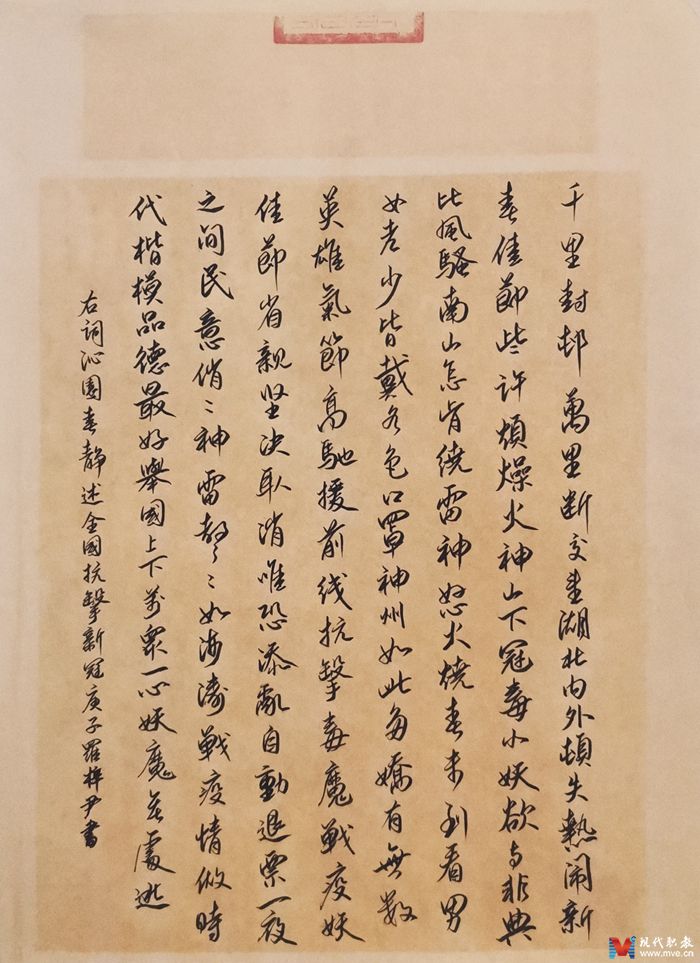 千里封邨萬里断交查湖北内外頓失熱闹新
春佳節些許煩燥火神山下冠毒小妖欲与非典
比風騷南山怎肯繞雷神怒火燒春未到看男
女老少皆戴各色口罩神州如此多嬌有無数
英雄氣節高馳援前线抗擊毒魔戰疫妖
佳節省親坚决取消唯恐添亂自動退票一夜
之间民意俏〻神雷聲〻如海濤戰疫情做時
代楷模品德最好舉國上下万眾一心妖魔无處逃
右词沁園春静述全國抗擊新冠庚子羅梓尹書
现代职教
www.mve.cn